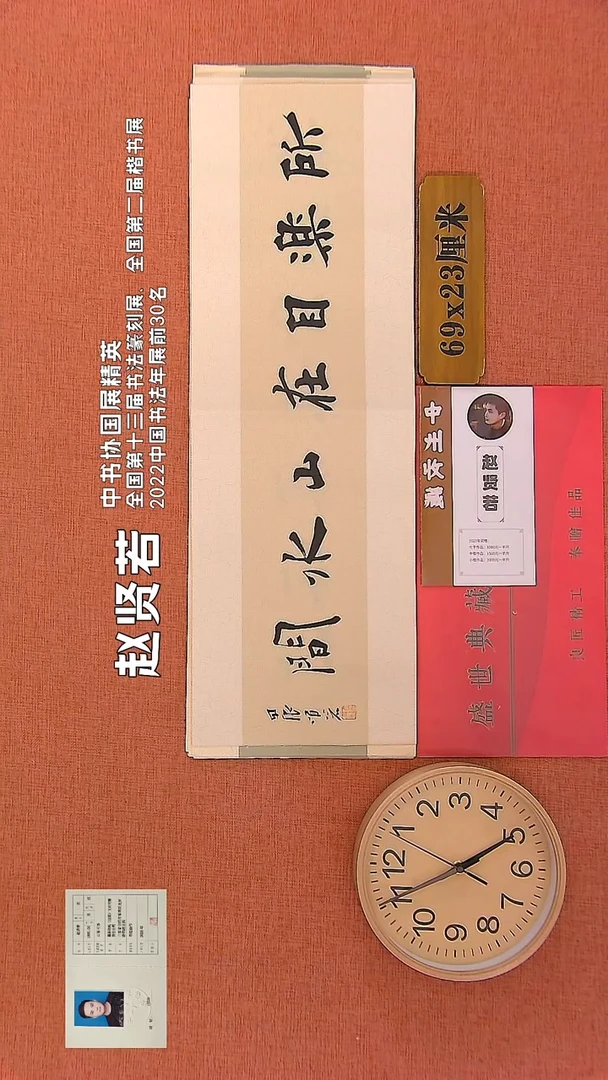 赵贤若
中书协国展精英
全国第十三届书法篆刻展、全国第二届楷书展
2022中国书法年展前30名
所樂自在山水間
69x23厘米
赵贤若
盛世典藏
良匠精工 奉赠佳品
12
1
2
3
4
5
6
7
8
9
10
11